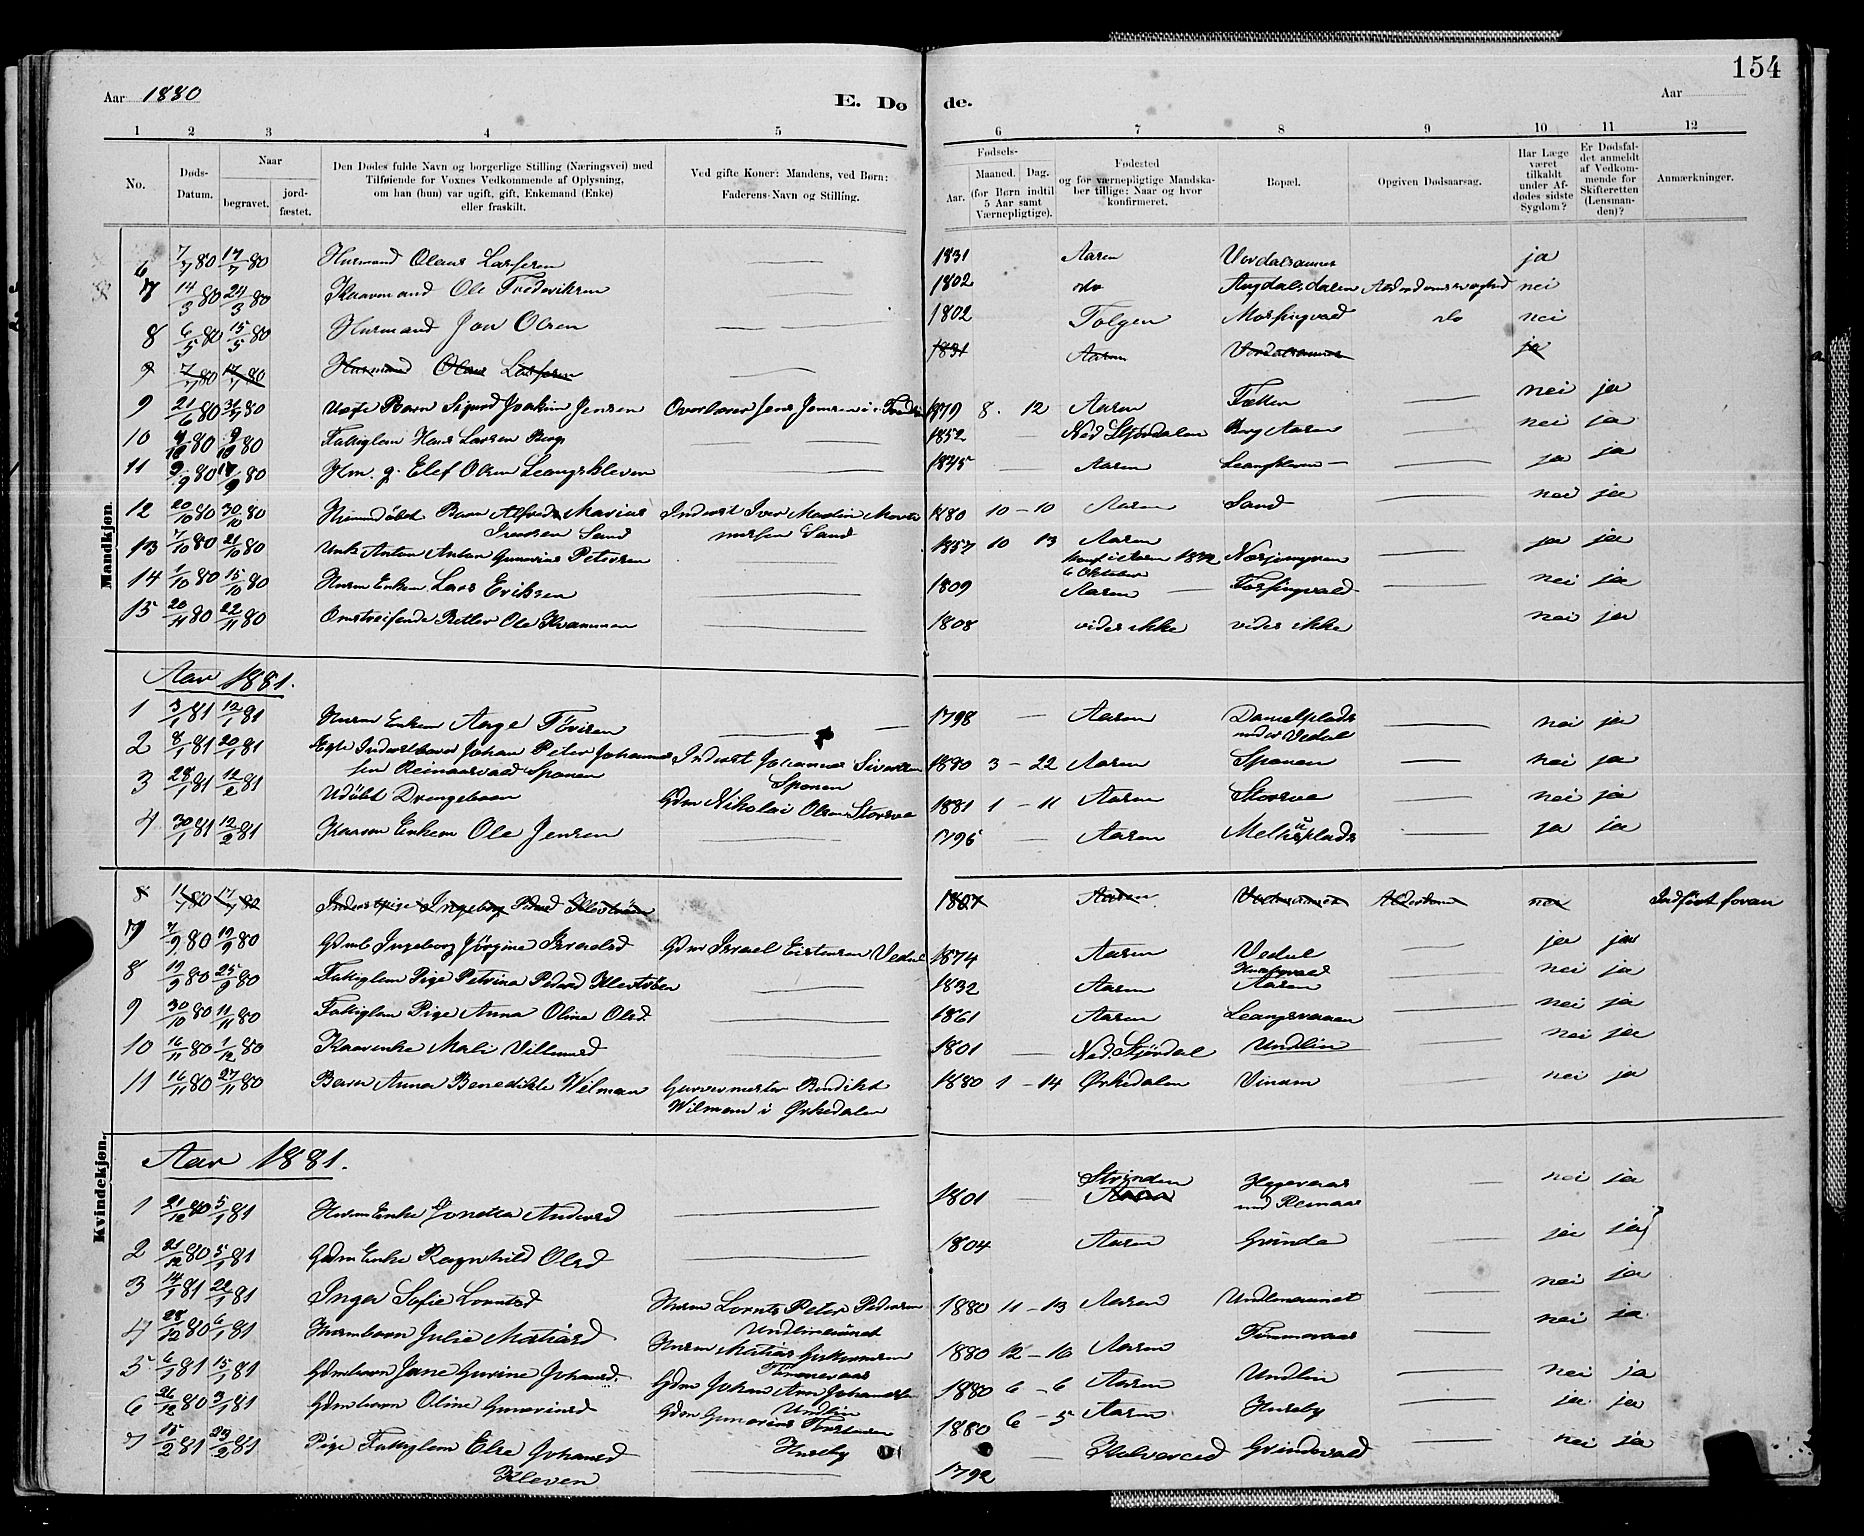 154
Aar 1880
E. Dø
de.
Aar
1 2 3 4 5 6 7 8 9 10 11 12
No.
Døds-Datum.
Naar
begravet.
jord-fæstet.
Den Dødes fulde Navn og borgerlige Stilling (Næringsvei) med
Tilføiende for Voxnes Vedkommende af Oplysning,
om han (hun) var ugift, gift, Enkemand (Enke)
eller fraskilt.
Ved gifte Koner: Mandens, ved Børn:
Faderens Navn og Stilling.
Fødsels-
Aar. Maaned. Dag.
(for Børn indtil
5 Aar samt
Værnepligtige).
Fødested
og for værnepligtige Mandska-
ber tillige: Naar og hvor
konfirmeret.
Bopæl.
Opgiven Dødsaarsag.
Har Læge
været
tilkaldt
under Af-
dødes sidste
Sygdom?
Er Dødsfal-
det anmeldt
af Vedkom-
mende for
Skifteretten
(Lensman-
den)?
Anmærkninger.
Mandkjøn.
6 7/7 80 17/7 80 Husmand Olaus Larssen 1831 Aasen Vordalsaunet ja
7 14/3 80 24/3 80 Kaarmand Ole Frederiksen 1802 do Hugdalsdalen Alderdomssvaghed nei
8 6/5 80 15/5 80 Husmand Jon Olsen 1802 Tolgen do nei
9 7/7 80 17/7 80 Husmand Olaus Larssen 1831 Aasen Vordalsaunet ja
9 21/6 80 80 Uægte Barn Sigurd Joakim Jensen Overlærer Jens Jensen i 1879 8. 12 Aasen Fætten nei ja
10 80 80 Fattiglem Hans Larsen Berg 1852 Ned Stjørdalen Berg Aasen nei ja
11 9/9 80 17/9 80 Hm. g. Elef Olsen Leangskleven 1845 Aasen ja ja
12 20/10 80 30/10 80 Hjemmedøbt Barn Alfred Marius Inderst Iver Martin 1880 10 - 10 Aasen Sand nei ja
Sand Sand
13 7/10 80 21/10 80 Unk Anton Anton Gunerius Petersen 1857 10 13 Aasen ja ja
Konf i Aasen 1872
6 Oktober
14 1/10 80 15/10 80 Husm Enkem Lars Eriksen 1809 Aasen nei ja
15 20/11 80 22/11 80 Omstreifende Betler Ole Kvammen 1808 vides ikke vides ikke nei ja
Aar 1881.
1 3/1 81 12/1 81 Husm Enkem Aage Tørisen 1798 Aasen Damelplads nei ja
under Vedul
2 8/1 81 20/1 81 Ægte Inderstbarn Johan Peter Johannes Inderst Johannes Sivertsen 1880 3 - 22 Aasen Sponen nei ja
sen Reinaasvald Sponen Sponen
3 28/1 81 12/2 81 Udøbt Drengebarn Gdm Nikolai Olsen Storsve 1881 1 - 11 Aasen Storsve nei ja
4 30/1 81 12/2 81 Husm Enkem Ole Jensen 1796 Aasen ja ja
Kvindekjøn.
8 11/7 80 17/7 80 Inderstpige Ingeborg Pedersd 1807 Aasen Alderdom nei Indført foran
7 7/9 80 19/9 80 Gdmb Ingeborg Jørgine Israelsd Gdm Israel Vedul 1874 Aasen Vedul ja ja
8 19/9 80 25/9 80 Fattiglem Pige Petrina Pedersd 1832 Aasen Aasen nei ja
9 30/10 80 11/11 80 Fattiglem Pige Anna Oline Olsd. 1861 Aasen nei ja
10 16/11 80 1/12 80 Kaarenke Mali Villumsd 1801 Ned. Stjørdal Undlin nei ja
11 16/11 80 27/11 80 Barn Anna Benedikte Wilman Garvermester Bendikt 1880 1 - 14 Ørkedalen Vinum nei ja
Wilman i Ørkedalen
Aar 1881.
1 21/12 80 5/1 81 Husm Enke Jonetta Andersd 1801 Strinden nei ja
Aasen und Reinaas
2 21/12 80 5/1 81 Gdm Enke Ragnhild Olsd 1804 Aasen Grinde ja ja
3 14/1 81 22/1 81 Inga Sofie Lorntsd Husm Lornts Peter Pedersen 1880 11 - 13 Aasen Undlinsaunet nei ja
Undlinsaunet
4 28/12 80 6/1 81 Husmbarn Julie Matiasd Husm Matias 1880 12 - 16 Aasen Timmeraas nei ja
Timmeraas
5 6/1 81 15/1 81 Gdmbarn Jane Gurine Johansd. Gdm Johan Arn Johansen 1880 6 - 6 Aasen Undlin nei ja
Undlin
6 26/12 80 3/1 81 Gdmbarn Oline Gunerinsd Gdm Gunerius 1880 6 - 5 Aasen Husby ja ja
Husby
7 15/2 81 23/2 81 Pige Fattiglem Else Johansd 1792 Grindsvald nei ja
Kleven